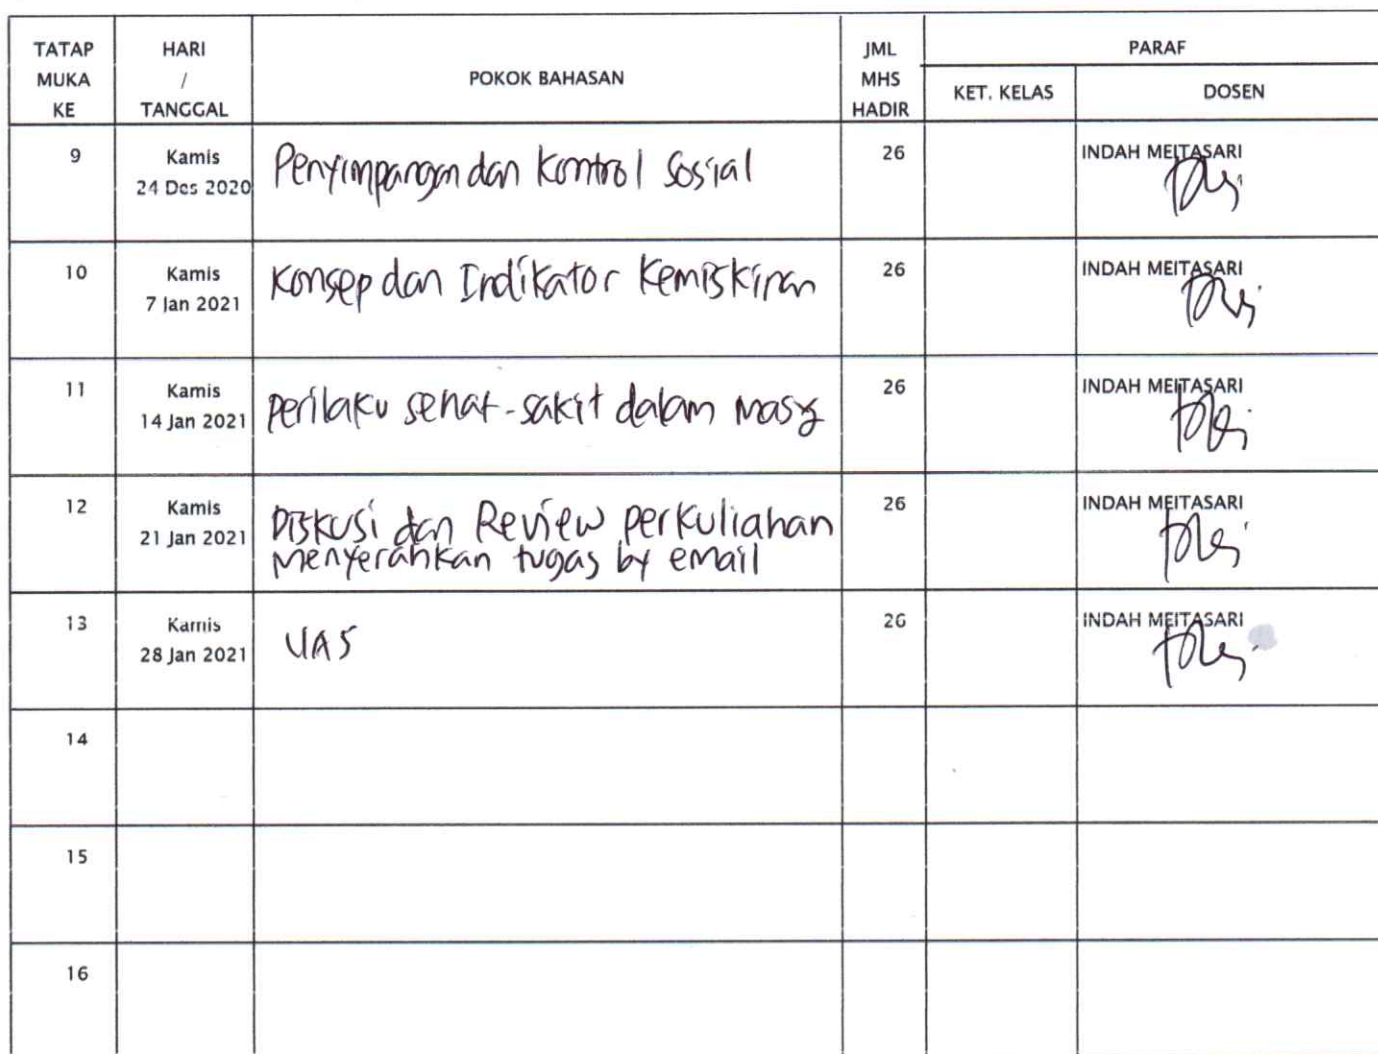 TATAP MUKA KE HARI / TANGGAL POKOK BAHASAN JML MHS HADIR PARAF
KET. KELAS DOSEN
9 Kamis 24 Des 2020 Penyimpangan dan Kontrol Sosial 26 INDAH MEITASARI
10 Kamis 7 Jan 2021 Konsep dan Indikator Kemiskinan 26 INDAH MEITASARI
11 Kamis 14 Jan 2021 Perilaku sehat-sakit dalam masy 26 INDAH MEITASARI
12 Kamis 21 Jan 2021 Diskusi dan Review perkuliahan 26 INDAH MEITASARI
menyerahkan tugas by email
13 Kamis 28 Jan 2021 UAS 26 INDAH MEITASARI
14
15
16